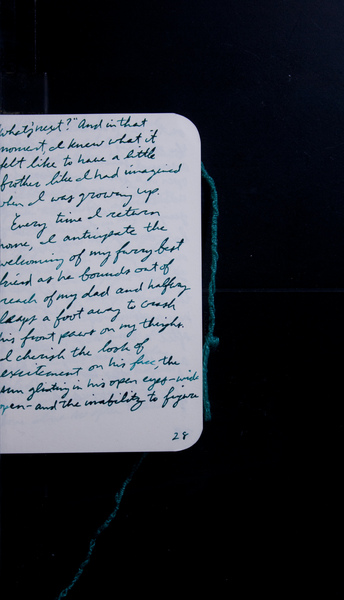 what's next?" And in that
moment, I knew what it
felt like to have a little
brother like I had imagined
when I was growing up.
Every time I return
home, I anticipate the
welcoming of my furry best
friend as he bounds out of
reach of my dad and halfway
leaps a foot away to crash
his front paws on my thighs.
I cherish the look of
excitement on his face, the
sun glinting in his open eyes-wide
open-and the inability to figure
28